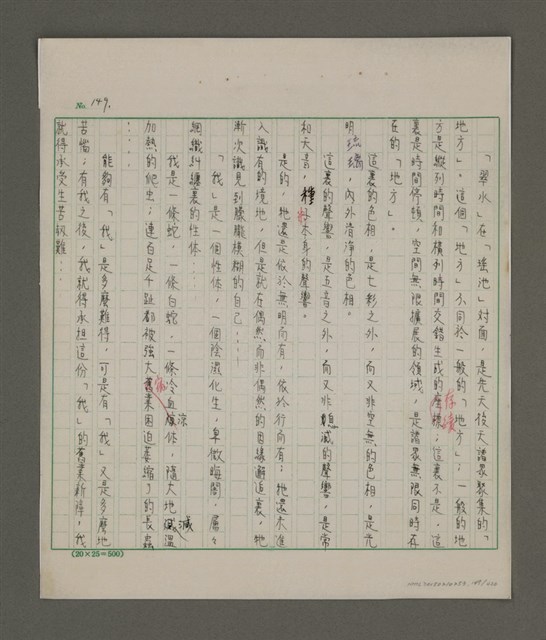 No. 149.
「翠水」在「瑤池」對面，是先天後天諸眾聚集的「
地方」。這個「地方」不同於一般的「地方」；一般的地
方是縱列時間和橫列時間交錯生成的座標；這裏不是，這
存後
裏是時間停頓，空間無限擴展的領域，是諸眾無限同時存
在的「地方」。
這裏的色相，是七彩之外，而又非空無的色相，是光
明琉璃、內外清淨的色相。
這裏的聲響，是五音之外，而又非頽滅的聲響，是常
和天音，種外本身的聲響。
是的，牠還是依於無明而有，依於行而有；牠還未進
入識有的境地，但是就在偶然而非偶然的因緣邂逅裏，牠
漸次識見到朦朧模糊的自己……
「我」是一個性體，一個陰濕化生，卑微晦闇，層々
網織糾纏裏的性體…
我是一條蛇，一條白蛇，一條冷血涼體，隨大地滅溫
加熱的爬虫；連百足千趾都被強大舊業困迫萎縮了的長蟲
……
能夠有「我」是多麼難得；可是有「我」又是多麼地
苦惱；有我之後，我就得承担這份「我」的舊業新障，我
就得承受生苦報難…
(20×25=500)